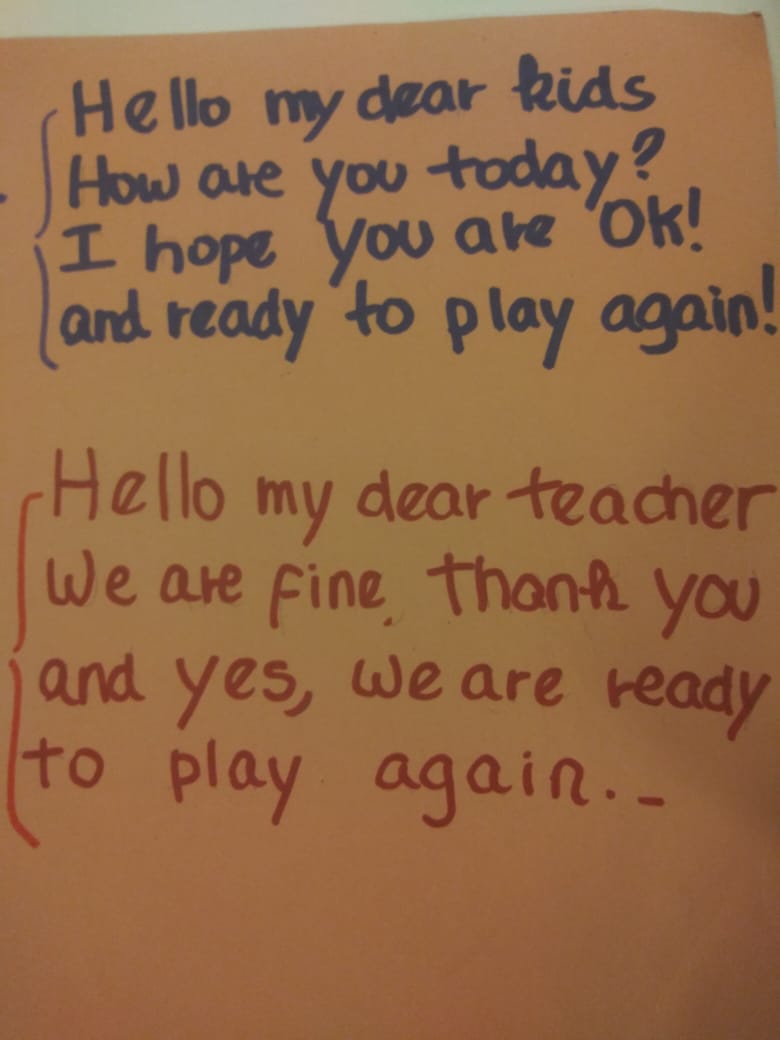 Hello my dear kids
How are you today?
I hope you are Ok!
and ready to play again!
Hello my dear teacher
We are fine, thank you
and yes, we are ready
to play again.-